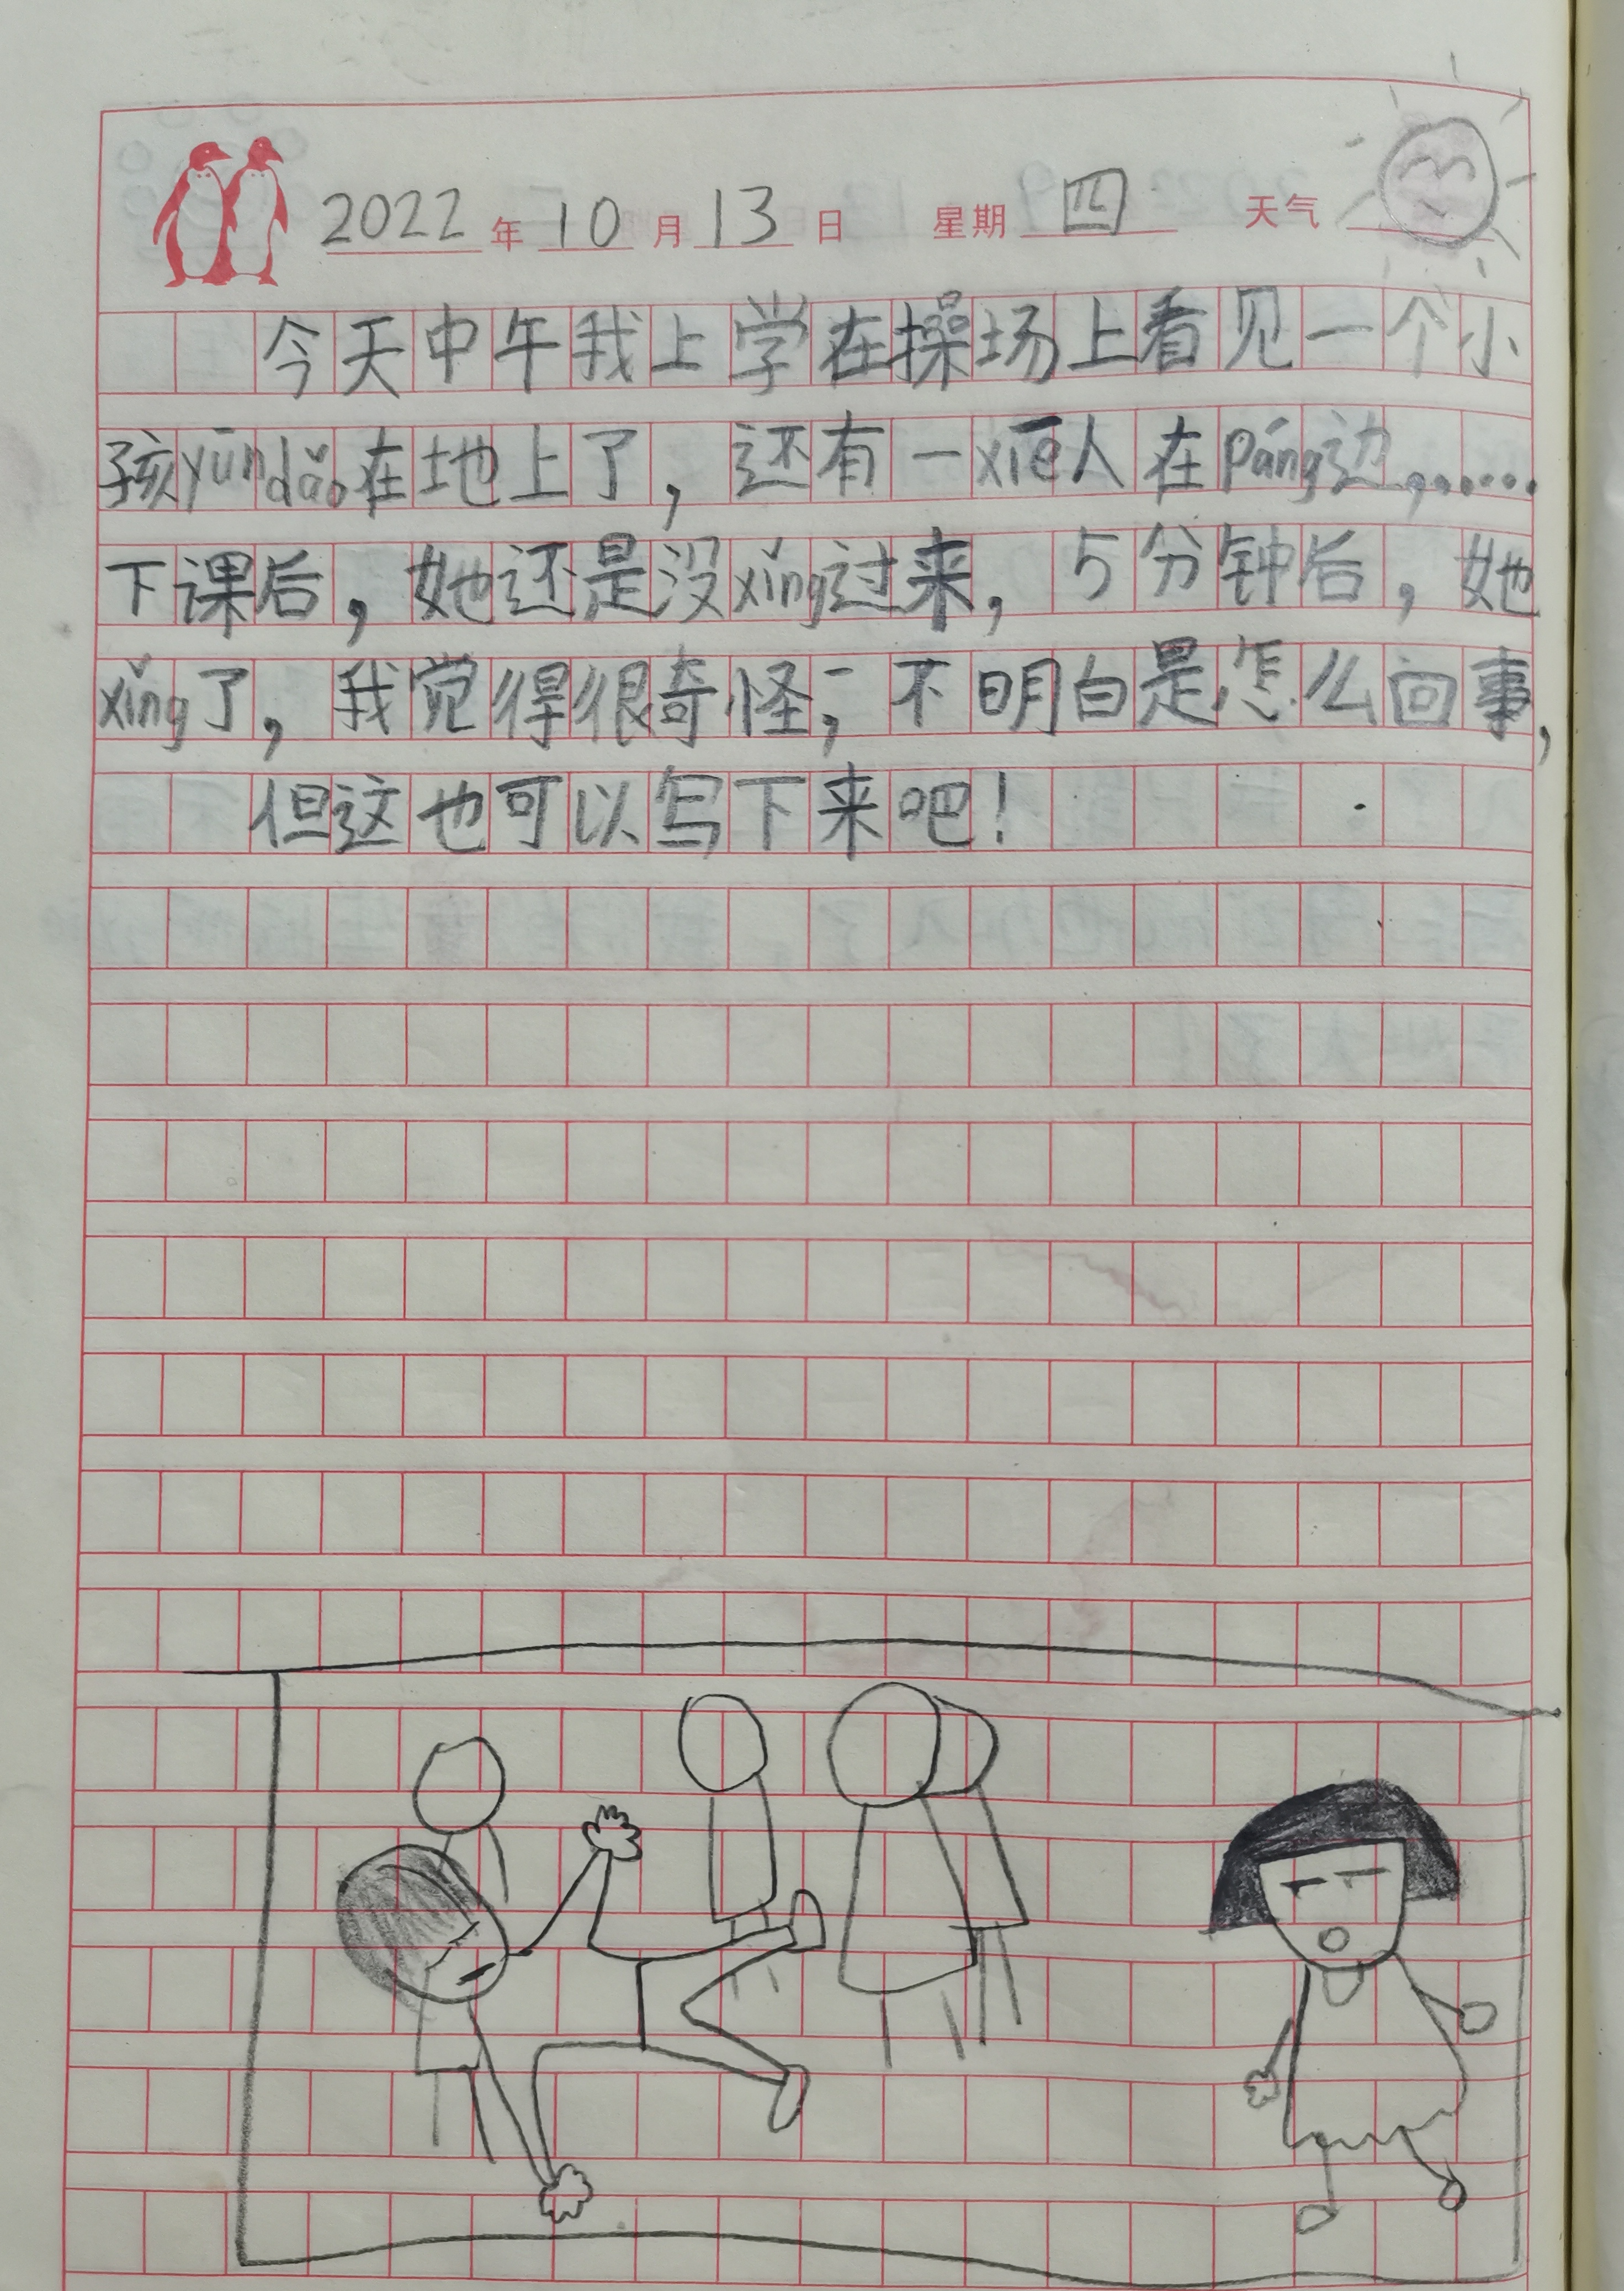 2022年10月13日 星期四 天气
今天中午我上学在操场上看见一个小
孩yūndǎo在地上了，还有一xiē人在páng边，……
下课后，她还是没xǐng过来，5分钟后，她
xǐng了，我觉得很奇怪；不明白是怎么回事，
但这也可以写下来吧！